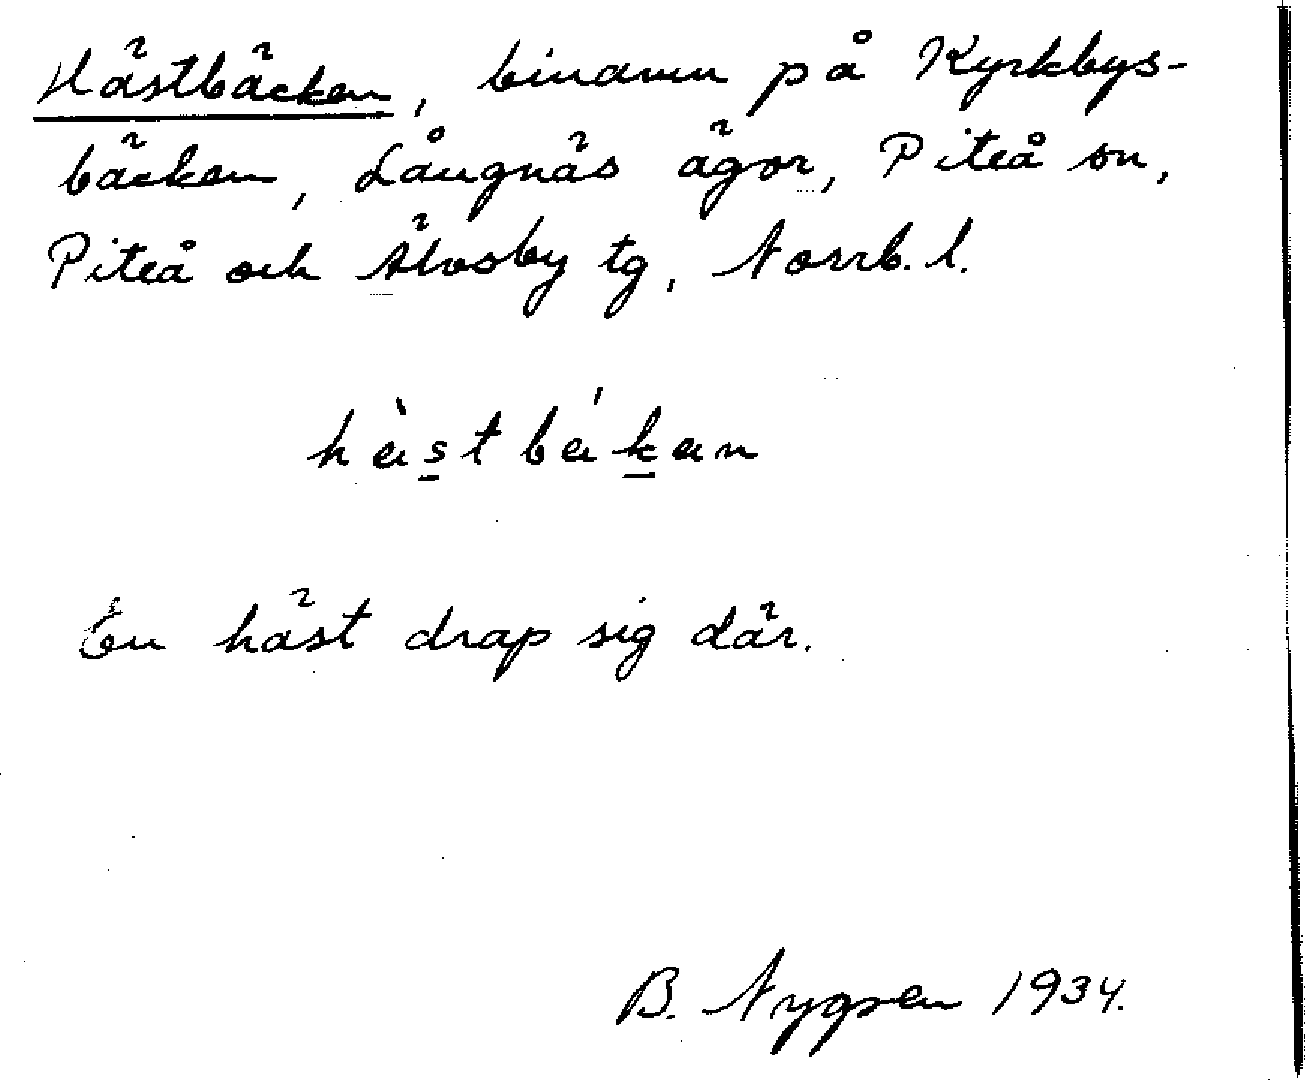 Hästbäcken, binamn på Kyrkbys-
bäcken, Långnäs ägor, Piteå sn,
Piteå och Älvsby tg, Norrb. l.
hàstbákan
En häst drap sig där.
B. Nygren 1934.